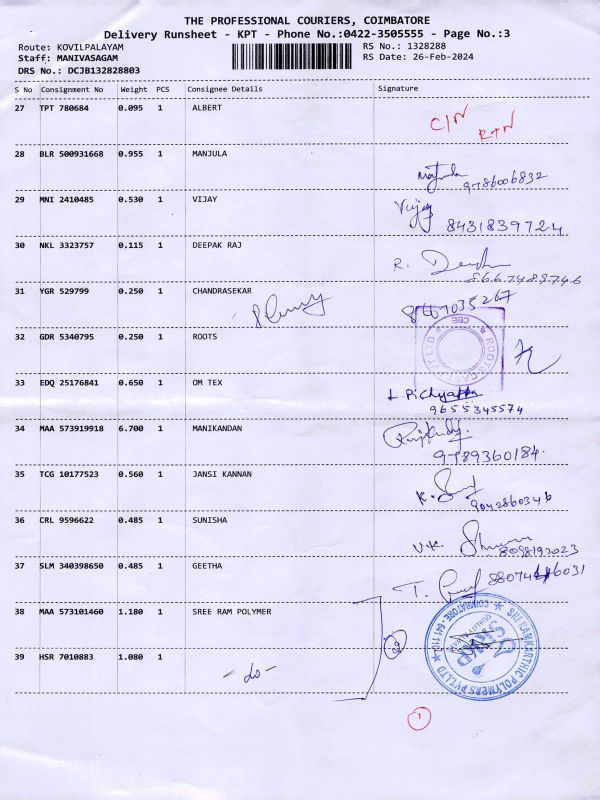 THE PROFESSIONAL COURIERS, COIMBATORE
Delivery Runsheet - KPT - Phone No.:0422-3505555 - Page No.:3
Route: KOVILPALAYAM RS No.: 1328288
Staff: MANIVASAGAM RS Date: 26-Feb-2024
DRS No.: DCJB132828803
S No Consignment No Weight PCS Consignee Details Signature
27 TPT 780684 0.095 1 ALBERT
C/N
R+N
28 BLR 500931668 0.955 1 MANJULA
Majula
9786006832
29 MNI 2410485 0.530 1 VIJAY
Vijay
8431839724
30 NKL 3323757 0.115 1 DEEPAK RAJ
R.
8667489746
31 YGR 529799 0.250 1 CHANDRASEKAR
8667035267
32 GDR 5340795 0.250 1 ROOTS
33 EDQ 25176841 0.650 1 OM TEX
L. Pichyappa
9655345574
34 MAA 573919918 6.700 1 MANIKANDAN
9789360184.
35 TCG 10177523 0.560 1 JANSI KANNAN
K.
9042860346
36 CRL 9596622 0.485 1 SUNISHA
V.K.
8098192023
37 SLM 340398650 0.485 1 GEETHA
T.
38 MAA 573101460 1.180 1 SREE RAM POLYMER
2
39 HSR 7010883 1.080 1
- do -
SRI RANKARTHIC POLYMERS PVT.LTD
COIMBATORE - 641 110
1